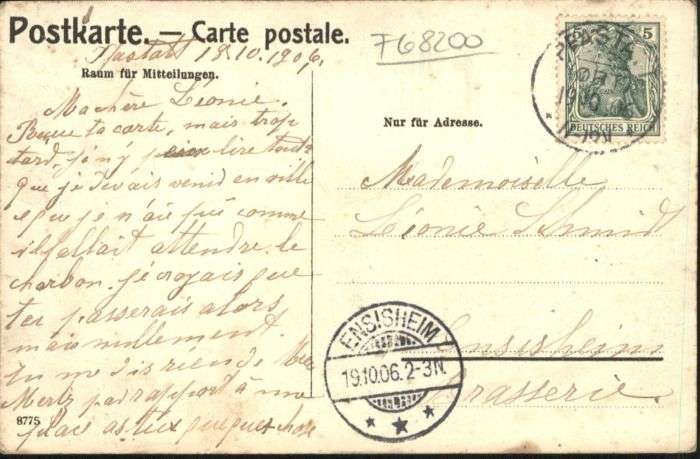 Postkarte. — Carte postale.
768200
18.10.1906.
Raum für Mitteilungen.
Nur für Adresse.
5
DEUTSCHES REICH
Ma chère Léonie.
Reçue ta carte, mais trop
tard, j'ai lire
que je devais venir en ville
et que je n'ai pu comme
il fallait attendre le
charbon. je croyais que
tu passerais alors
mais nullement.
tu me dis rien de
Mertz par rapport à une
place as tu quelque chose
8775
Mademoiselle
Léonie Schmidt
Ensisheim
Brasserie.
ENSISHEIM
19.10.06. 2-3N.